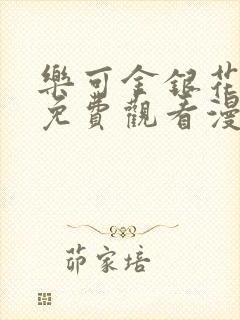 樂可金銀花
免費觀看漫
茆家培